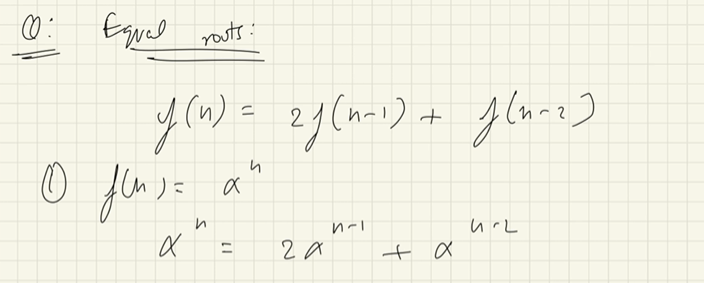 Q: Equal routs:
f(n) = 2f(n-1) + f(n-2)
① f(n) = αⁿ
αⁿ = 2αⁿ⁻¹ + αⁿ⁻²